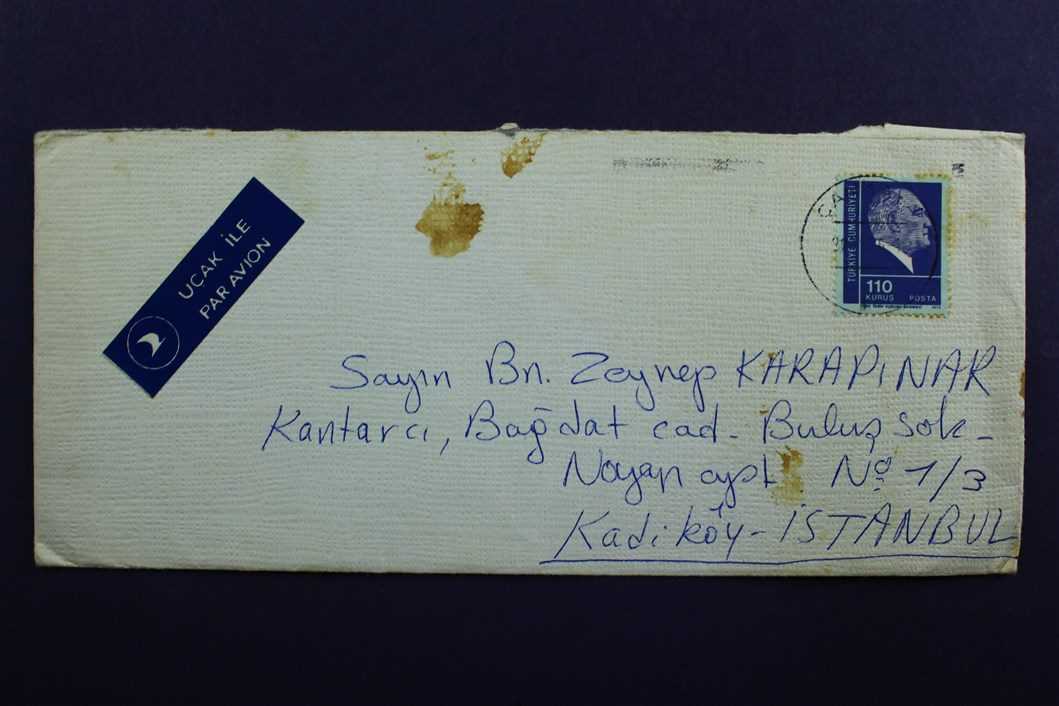 UÇAK İLE
PAR AVION
TÜRKİYE CUMHURİYETİ
110
KURUŞ POSTA
Sayın Bn. Zeynep KARAPINAR
Kantarcı, Bağdat cad. Buluş sok-
Noyan apt. No 1/3
Kadıköy-İSTANBUL